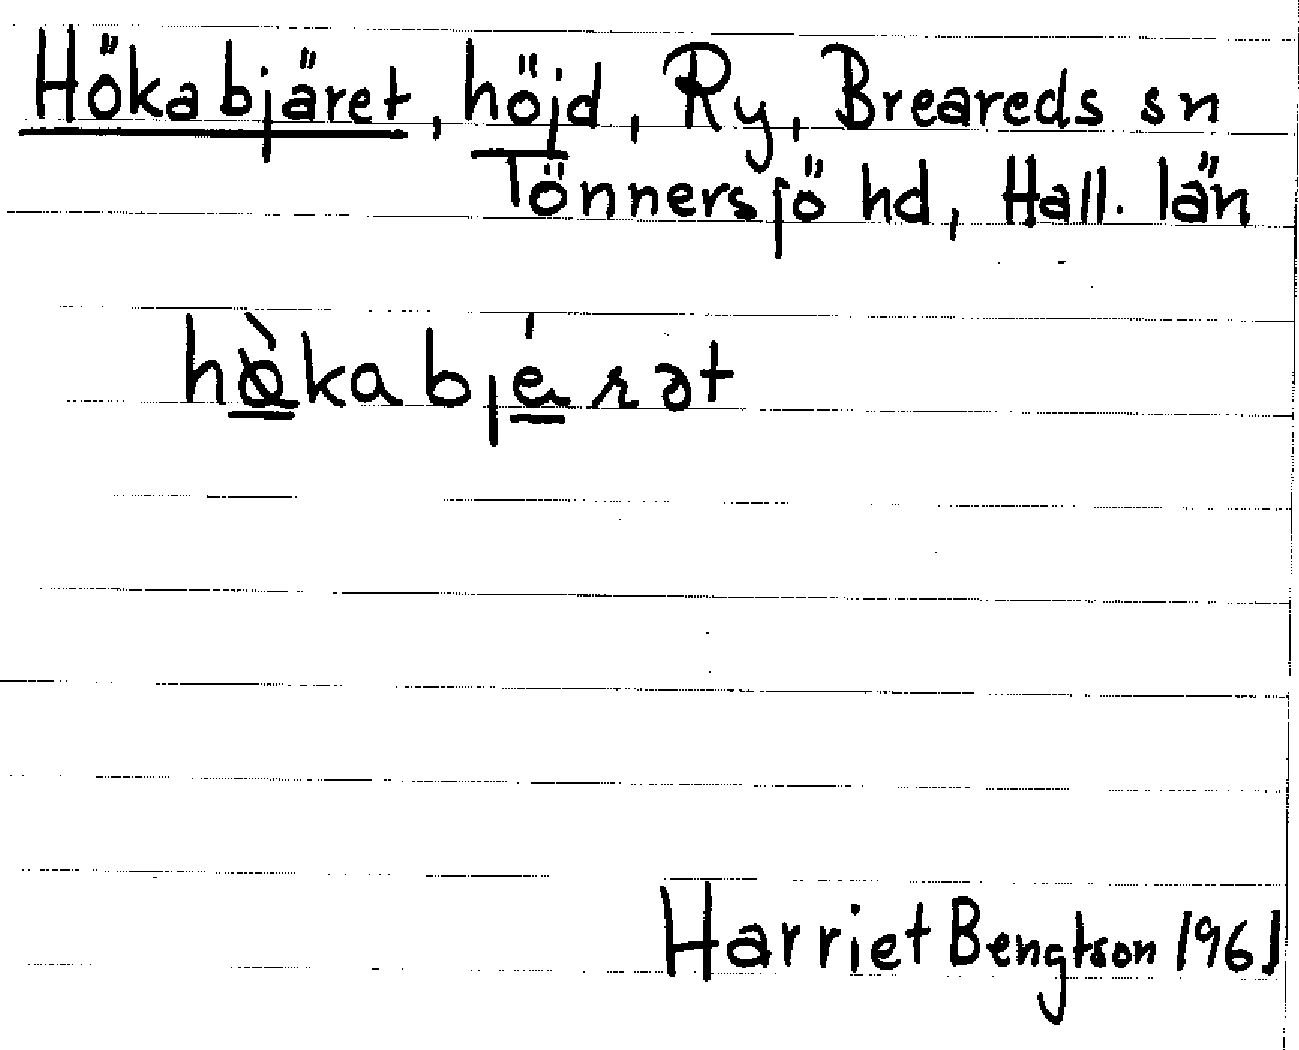 Hökabjäret, höjd, Ry, Breareds sn
Tönnersjö hd, Hall. län
hø̀kabjǽrət
Harriet Bengtson 1961